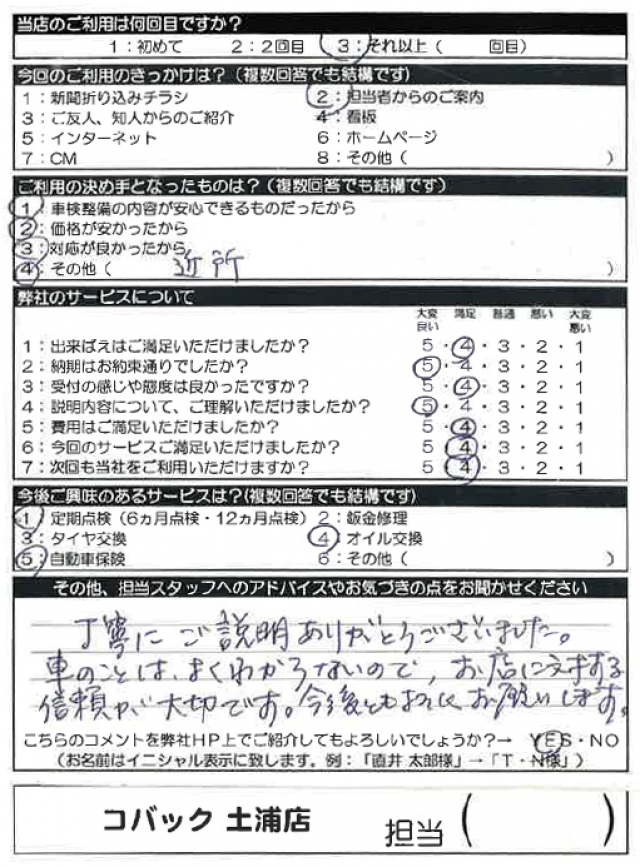 当店のご利用は何回目ですか?
1:初めて 2:2回目 3:それ以上( 回目)
今回のご利用のきっかけは?(複数回答でも結構です)
1:新聞折り込みチラシ 2:担当者からのご案内
3:ご友人、知人からのご紹介 4:看板
5:インターネット 6:ホームページ
7:CM 8:その他( )
ご利用の決め手となったものは?(複数回答でも結構です)
1:車検整備の内容が安心できるものだったから
2:価格が安かったから
3:対応が良かったから
4:その他( 近所 )
弊社のサービスについて
大変良い 満足 普通 悪い 大変悪い
1:出来ばえはご満足いただけましたか? 5・4・3・2・1
2:納期はお約束通りでしたか? 5・4・3・2・1
3:受付の感じや態度は良かったですか? 5・4・3・2・1
4:説明内容について、ご理解いただけましたか? 5・4・3・2・1
5:費用はご満足いただけましたか? 5・4・3・2・1
6:今回のサービスご満足いただけましたか? 5・4・3・2・1
7:次回も当社をご利用いただけますか? 5・4・3・2・1
今後ご興味のあるサービスは?(複数回答でも結構です)
1:定期点検(6ヵ月点検・12ヵ月点検) 2:鈑金修理
3:タイヤ交換 4:オイル交換
5:自動車保険 6:その他( )
その他、担当スタッフへのアドバイスやお気づきの点をお聞かせください
丁寧にご説明ありがとうございました。
車のことは、よくわからないので、お店に対する
信頼が大切です。今後ともよろしくお願いします。
こちらのコメントを弊社HP上でご紹介してもよろしいでしょうか?→ YES・NO
(お名前はイニシャル表示に致します。例:「直井 太郎様」→「T・N様」)
コバック 土浦店 担当( )